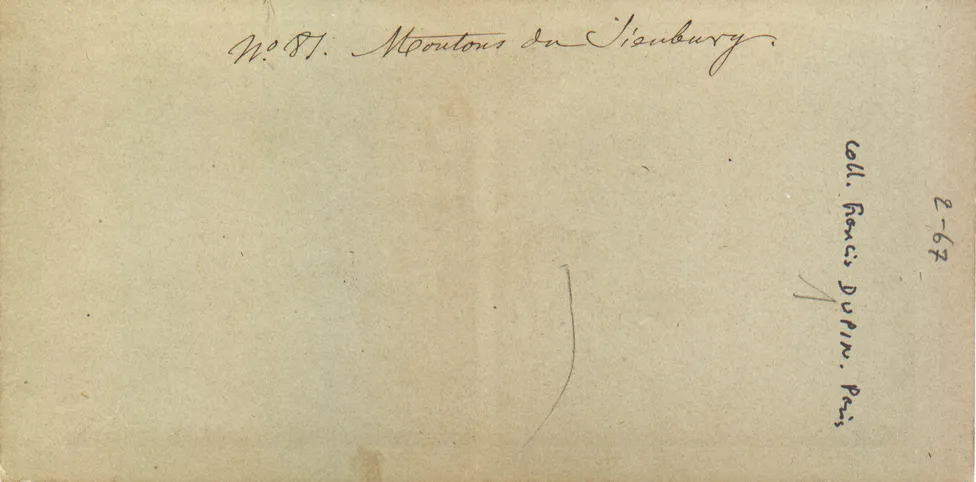 No. 81. Moutons du Sienbury.
Coll. Francis DUPIN. Paris
2-67